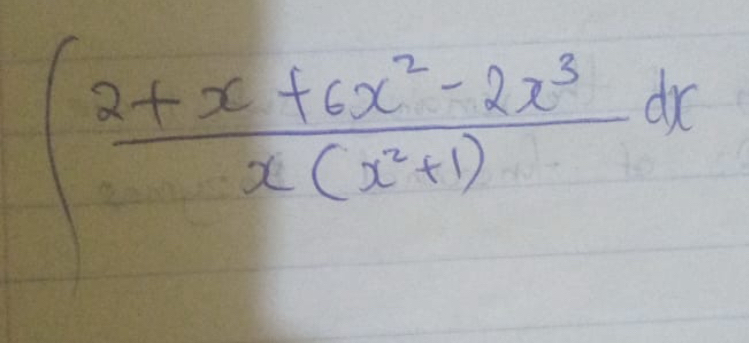 ∫ (2 + x + 6x² - 2x³) / (x (x² + 1)) dx